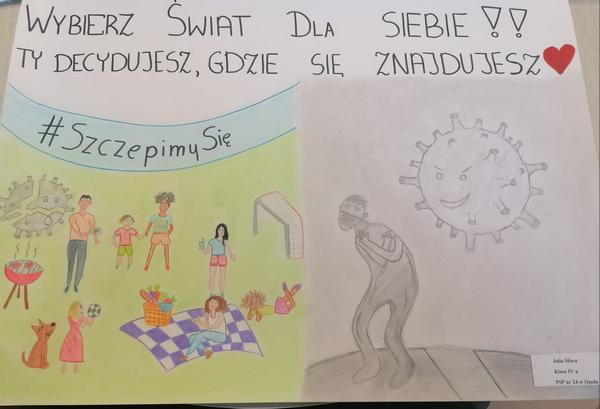 WYBIERZ ŚWIAT DLA SIEBIE!!
TY DECYDUJESZ, GDZIE SIĘ ZNAJDUJESZ
#SzczepimySię
Julia Śliwa
Klasa IV a
PSP nr 24 w Opolu